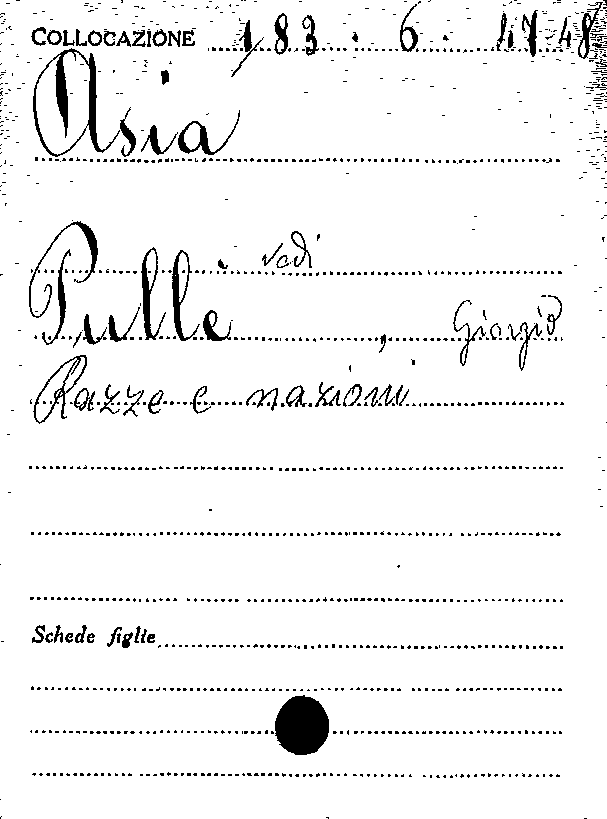 COLLOCAZIONE 183 . 6 . 47-48
Asia
vedi
Pullè , Giorgio
Razze e nazioni
Schede figlie